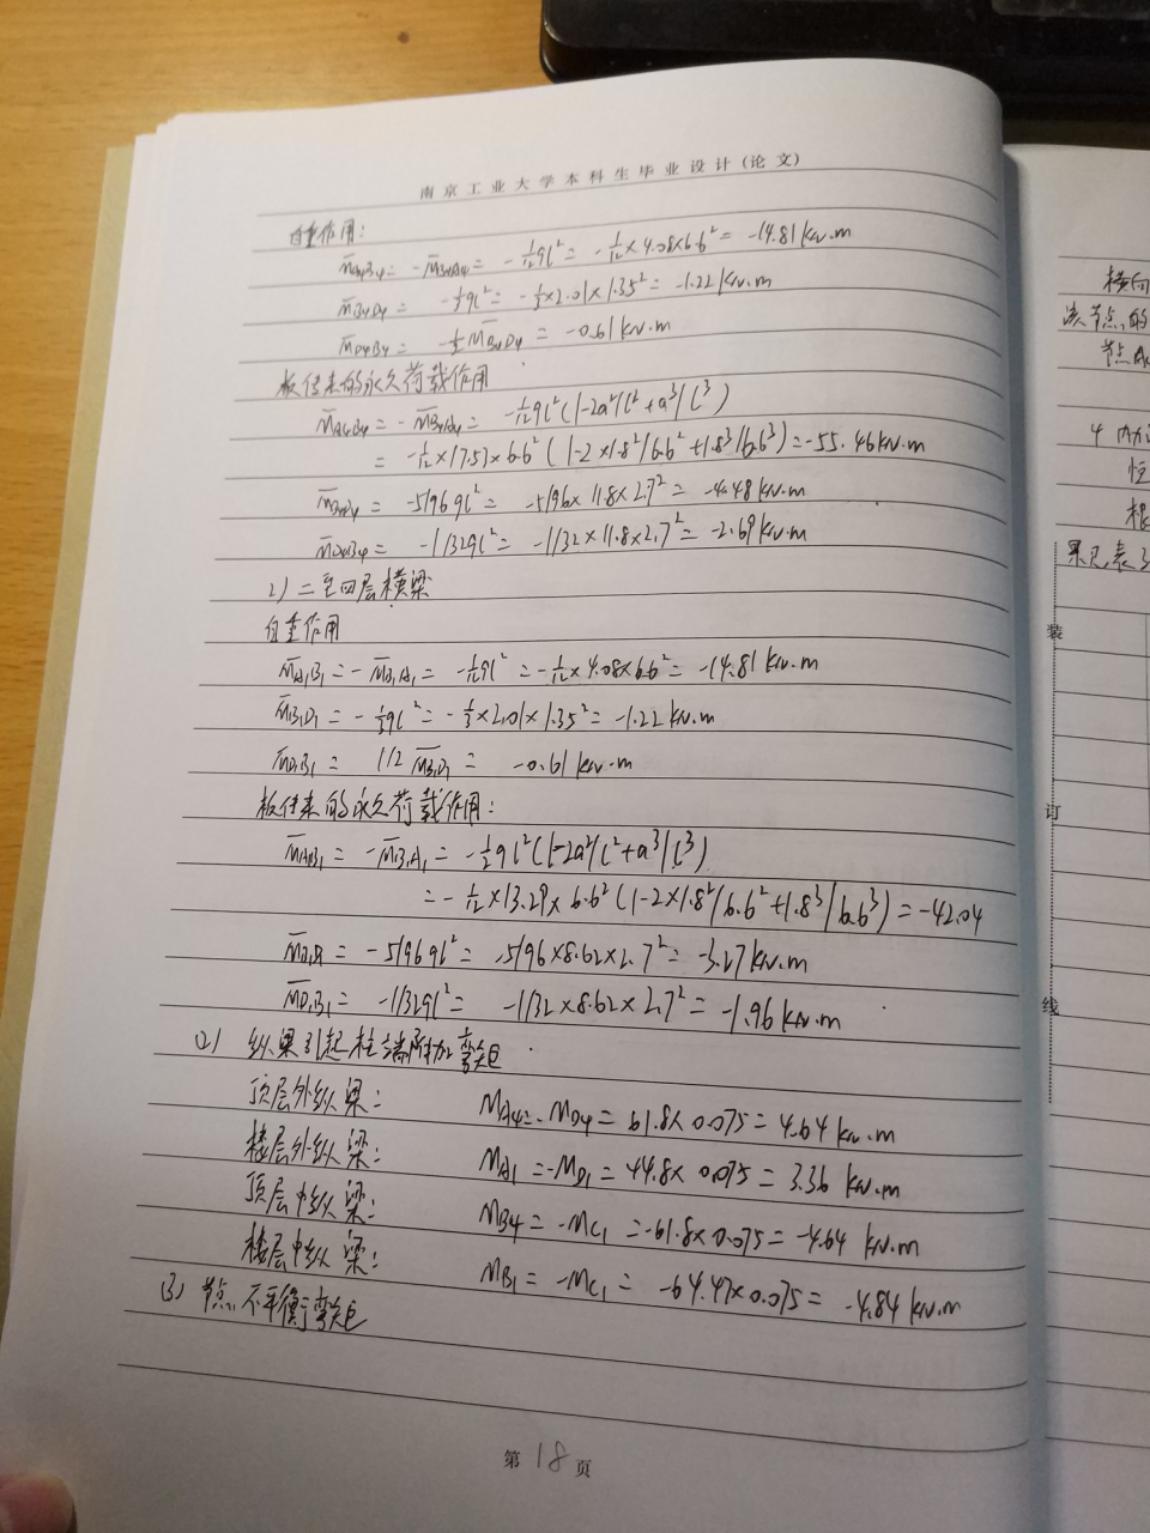 南京工业大学本科生毕业设计(论文)
自重作用:
M̄A4B4 = -M̄B4A4 = -1/12 ql² = -1/12×4.08×6.6² = -14.81 kN.m
M̄B4D4 = -1/3 ql² = -1/3×2.01×1.35² = -1.22 kN.m
M̄D4B4 = -1/2 M̄B4D4 = -0.61 kN.m
板传来的永久荷载作用
M̄A4B4 = -M̄B4A4 = -1/12 ql²(1-2a²/l²+a³/l³)
= -1/12×17.53×6.6²(1-2×1.8²/6.6²+1.8³/6.6³) = -55.46 kN.m
M̄B4D4 = -5/96ql² = -5/96×11.8×2.7² = -4.48 kN.m
M̄D4B4 = -1/32ql² = -1/32×11.8×2.7² = -2.69 kN.m
2) 二至四层横梁
自重作用
M̄A1B1 = -M̄B1A1 = -1/12 ql² = -1/12×4.08×6.6² = -14.81 kN.m
M̄B1D1 = -1/3 ql² = -1/3×2.01×1.35² = -1.22 kN.m
M̄D1B1 = 1/2 M̄B1D1 = -0.61 kN.m
板传来的永久荷载作用:
M̄A1B1 = -M̄B1A1 = -1/12 ql²(1-2a²/l²+a³/l³)
= -1/12×13.29×6.6²(1-2×1.8²/6.6²+1.8³/6.6³) = -42.04
M̄B1D1 = -5/96ql² = -5/96×8.62×2.7² = -3.27 kN.m
M̄D1B1 = -1/32ql² = -1/32×8.62×2.7² = -1.96 kN.m
(2) 纵梁引起柱端附加弯矩
顶层外纵梁: MA4 = -MD4 = 61.8×0.075 = 4.64 kN.m
楼层外纵梁: MA1 = -MD1 = 44.8×0.075 = 3.36 kN.m
顶层中纵梁: MB4 = -MC1 = -61.8×0.075 = -4.64 kN.m
楼层中纵梁: MB1 = -MC1 = -64.47×0.075 = -4.84 kN.m
(3) 节点不平衡弯矩
第18页
横向
该节点的
节点
4 内力
恒
根
果见表3
装
订
线